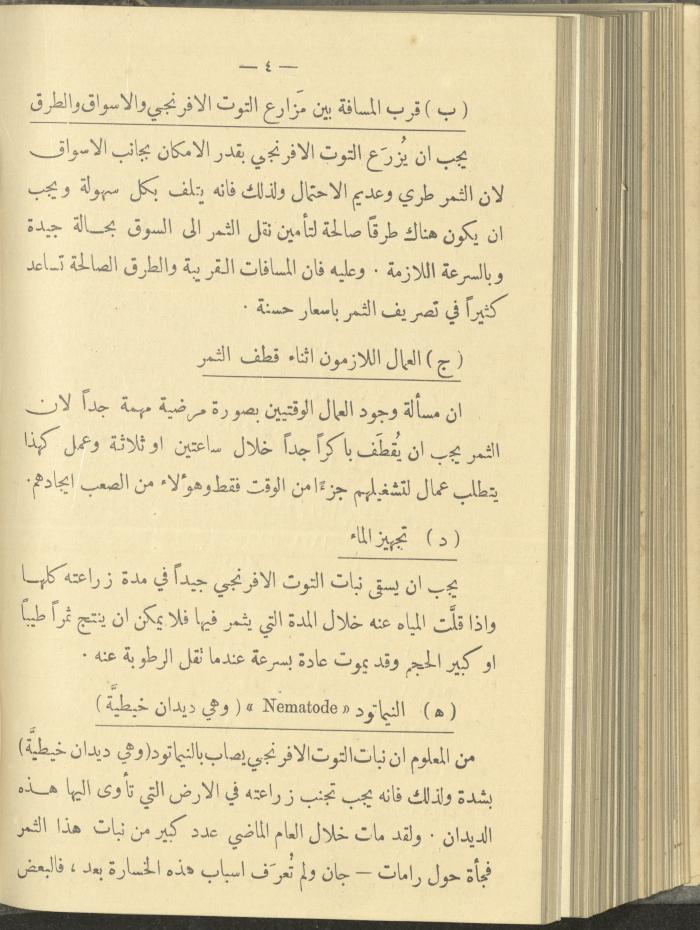 — ٤ —
( ب ) قرب المسافة بين مَزارع التوت الافرنجي والاسواق والطرق
يجب ان يُزرَع التوت الافرنجي بقدر الامكان بجانب الاسواق
لان الثمر طري وعديم الاحتمال ولذلك فانه يتلف بكل سهولة ويجب
ان يكون هناك طرقاً صالحة لتأمين نقل الثمر الى السوق بحالة جيدة
وبالسرعة اللازمة . وعليه فان المسافات القريبة والطرق الصالحة تساعد
كثيراً في تصريف الثمر باسعار حسنة .
( ج ) العمال اللازمون اثناء قطف الثمر
ان مسألة وجود العمال الوقتيين بصورة مرضية مهمة جداً لان
الثمر يجب ان يُقطَف باكراً جداً خلال ساعتين او ثلاثة وعمل كهذا
يتطلب عمال لتشغيلهم جزءًا من الوقت فقط وهؤلاء من الصعب ايجادهم.
( د ) تجهيز الماء
يجب ان يسقى نبات التوت الافرنجي جيداً في مدة زراعته كلها
واذا قلَّت المياه عنه خلال المدة التي يثمر فيها فلا يمكن ان ينتج ثمراً طيباً
او كبير الحجم وقد يموت عادة بسرعة عندما تقل الرطوبة عنه .
( ه ) النيماتود « Nematode » ( وهي ديدان خيطيَّة )
من المعلوم ان نبات التوت الافرنجي يصاب بالنيماتود (وهي ديدان خيطيَّة)
بشدة ولذلك فانه يجب تجنب زراعته في الارض التي تأوى اليها هذه
الديدان . ولقد مات خلال العام الماضي عدد كبير من نبات هذا الثمر
فجأة حول رامات — جان ولم تُعرَف اسباب هذه الخسارة بعد ، فالبعض